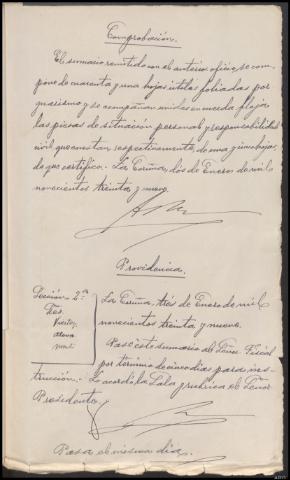 Comprobación.
El sumario remitido con el anterior oficio se com-
pone de cuarenta y una hojas útiles foliadas por
guarismo y se acompañan unidas en cuerda floja
las piezas de situación personal y responsabilidad
civil que constan respectivamente, de una y cinco hojas,
de que certifico.- La Coruña, dos de Enero de mil
novecientos treinta y nueve.
Providencia.
Sección 2ª
La Coruña, tres de Enero de mil
novecientos treinta y nueve.
Pase este sumario al Señor Fiscal
por término de cinco días para ins-
trucción.- Lo acordó la Sala y rubrica el Señor
Presidente.
Pasa el mismo día.